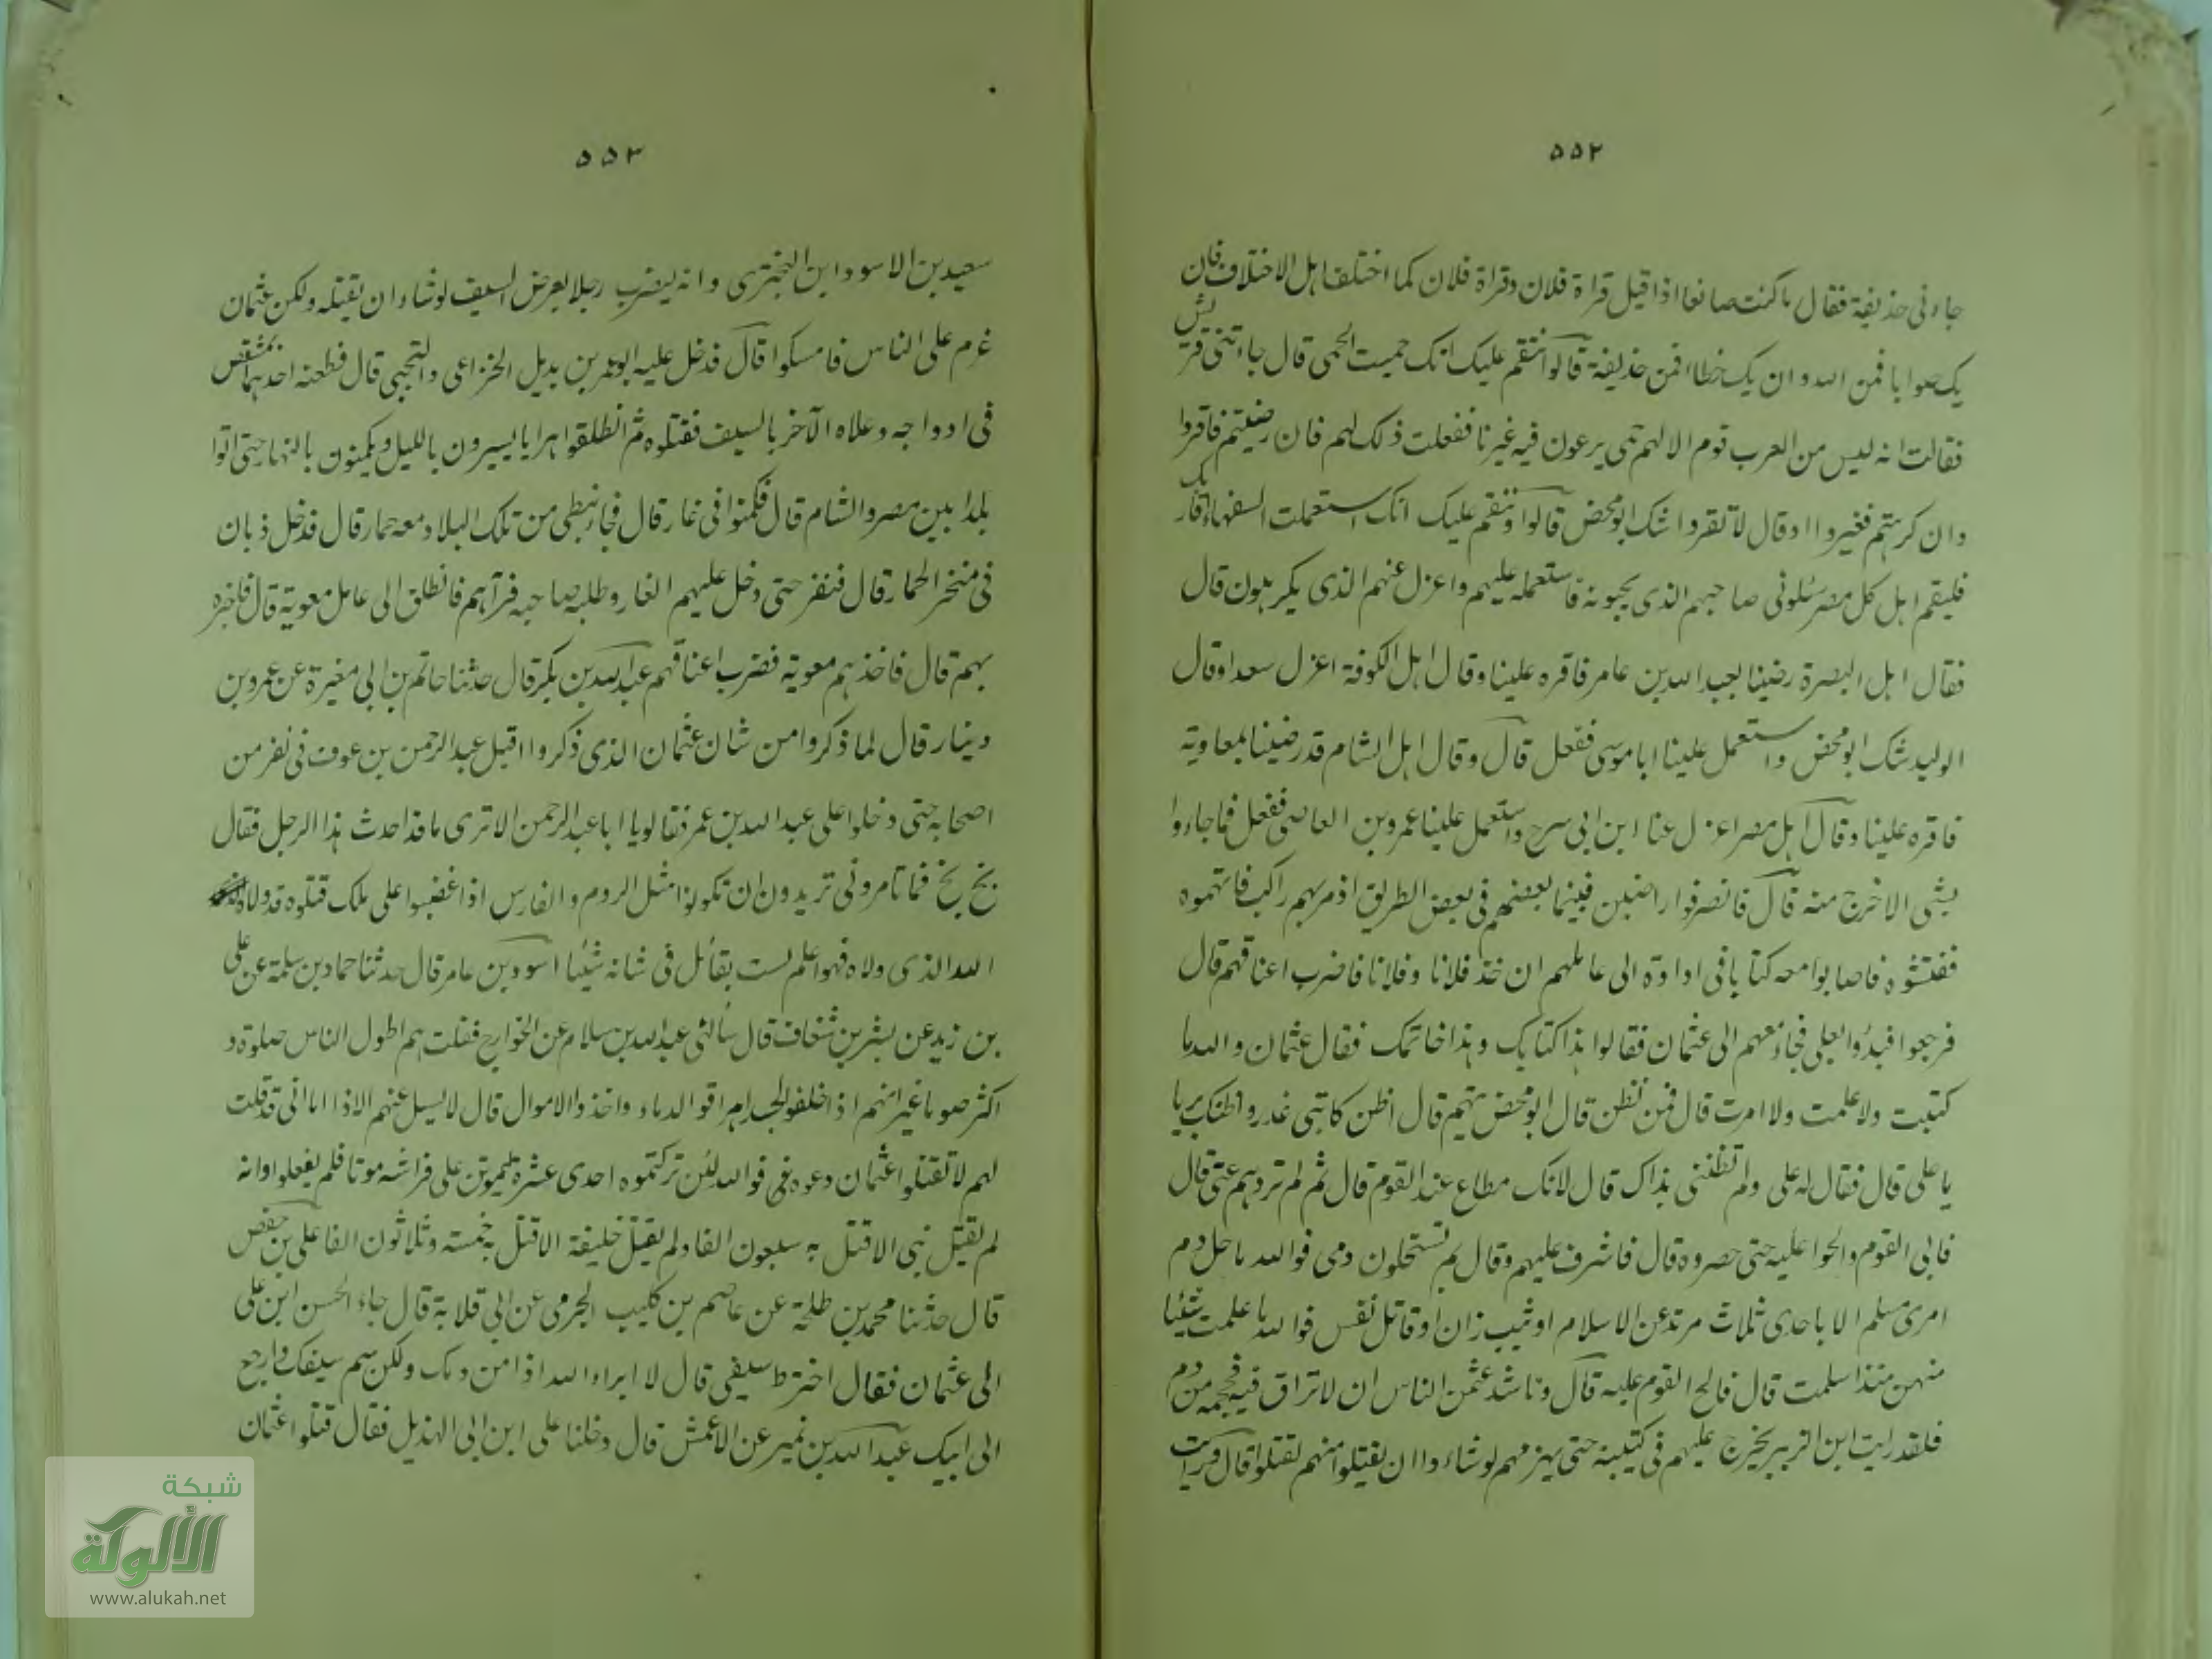 ٥٥٢
جاءنی حذیفة فقال ما کنت صانعا اذا قیل قراة فلان وقراة فلان کما اختلف اهل الاختلاف فان
یک صوابا فمن الله وان یک خطاا فمن حذیفة قالوا ننقم علیک انک حمیت الحمی قال جاءتنی قریش
فقالت انه لیس من العرب قوم الا لهم حمی یرعون فیه غیرنا ففعلت ذلک لهم فان رضیتم فاقروا
وان کرهتم فغیروا او قال لا تقروا شک ابو محض قالوا وننقم علیک انک استعملت السفهاء اقاربک
فلیقم اهل کل مصر یسئلونی صاحبهم الذی یحبونه فاستعمله علیهم واعزل عنهم الذی یکرهون قال
فقال اهل البصرة رضینا بعبد الله بن عامر فاقره علینا وقال اهل الکوفة اعزل سعدا وقال
الولید شک ابو محض واستعمل علینا ابا موسی ففعل قال وقال اهل الشام قد رضینا بمعاویة
فاقره علینا وقال اهل مصر اعزل عنا ابن ابی سرح واستعمل علینا عمرو بن العاصی ففعل فما جاءوا
بشی الا خرج منه قال فانصرفوا راضین فبینما بعضهم فی بعض الطریق اذ مر بهم راکب فاتهموه
ففتشوه فاصابوا معه کتابا فی اداوة الی عاملهم ان خذ فلانا وفلانا فاضرب اعناقهم قال
فرجعوا فبدؤا بعلی فجاء معهم الی عثمان فقالوا هذا کتابک وهذا خاتمک فقال عثمان والله ما
کتبت ولا علمت ولا امرت قال فمن تظن قال ابو محض تتهم قال اظن کاتبی غدر واظنک به یا
یا علی قال فقال له علی ولم تظننی بذاک قال لانک مطاع عند القوم قال ثم لم تردهم عنی قال
فابی القوم والحوا علیه حتی حصروه قال فاشرف علیهم وقال بم تستحلون دمی فوالله ما حل دم
امری مسلم الا باحدی ثلاث مرتد عن الاسلام او ثیب زان او قاتل نفس فوالله ما علمت شیئا
منهن منذ اسلمت قال فالح القوم علیه قال وناشد عثمن الناس ان لا تراق فیه محجمة من دم
فلقد رایت ابن الزبیر یخرج علیهم فی کتیبة حتی یهزمهم لو شاءوا ان یقتلوا منهم لقتلوا قال ورایت
٥٥٣
سعید بن الاسود ابن البختری وانه لیضرب رجلا بعرض السیف لو شاء ان یقتله ولکن عثمان
عزم علی الناس فامسکوا قال فدخل علیه ابو عمرو بن بدیل الخزاعی والتجیبی قال فطعنه احدهما بمشقص
فی اوداجه وعلاه الآخر بالسیف فقتلوه ثم انطلقوا هرابا یسیرون باللیل ویکمنون بالنهار حتی اتوا
بلدا بین مصر والشام قال فکمنوا فی غار قال فجاء نبطی من تلک البلاد معه حمار قال فدخل ذبان
فی منخر الحمار قال فنفر حتی دخل علیهم الغار وطلبه صاحبه فرآهم فانطلق الی عامل معویة قال فاخبره
بهم قال فاخذهم معویة فضرب اعناقهم عبد الله بن بکر قال حدثنا حاتم بن ابی مغیرة عن عمرو بن
دینار قال لما ذکروا من شان عثمان الذی ذکروا اقبل عبد الرحمن بن عوف فی نفر من
اصحابه حتی دخلوا علی عبد الله بن عمر فقالو یا ابا عبد الرحمن الا تری ما قد احدث هذا الرجل فقال
بخ بخ فما تامرونی تریدون ان تکونوا مثل الروم والفارس اذا غضبوا علی ملک قتلوه قد ولاه
الله الذی ولاه فهو اعلم لست بقائل فی شانه شیئا اسود بن عامر قال حدثنا حماد بن سلمة عن علی
بن زید عن بشر بن شغاف قال سألنی عبد الله بن سلام عن الخوارج فقلت هم اطول الناس صلوة و
اکثر صوما غیر انهم اذا خلفوا الجسر اهراقوا الدماء واخذوا الاموال قال لا یسئل عنهم الا ذا اما انی قد قلت
لهم لا تقتلوا عثمان دعوه فوالله لئن ترکتموه احدی عشرة لیموتن علی فراشه موتا فلم یفعلوا وانه
لم یقتل نبی الا قتل به سبعون الفا ولم یقتل خلیفة الا قتل به خمسة وثلاثون الفا علی بن حفص
قال حدثنا محمد بن طلحة عن عاصم بن کلیب الجرمی عن ابی قلابة قال جاء الحسن ابن علی
الی عثمان فقال اخترط سیفی قال لا ابراء الله اذا من دمک ولکن شم سیفک وارجع
الی ابیک عبد الله بن نمیر عن الاعمش قال دخلنا علی ابن ابی الهذیل فقال قتلوا عثمان
شبكة
الألوكة
www.alukah.net